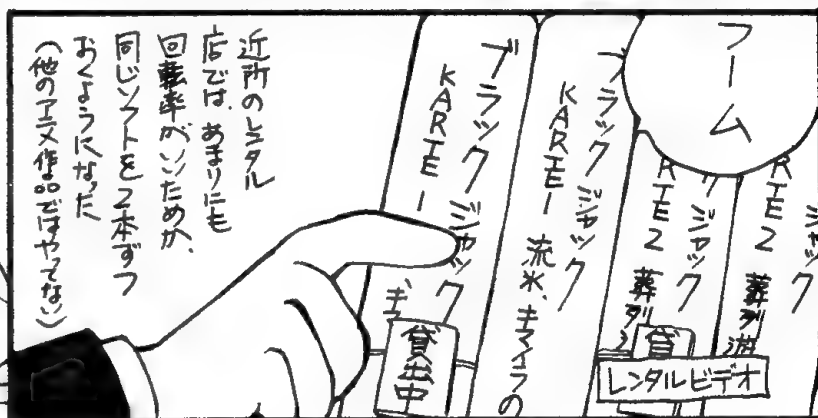 フーム
ジャッ
RTE2 葬列、遊
ク ジャック
RTE2 葬列、
貸
レンタルビデオ
ブラック ジャック
KARTE1 流氷、キマイラの
ブラック ジャック
KARTE1 、キ
貸出中
近所のレンタル
店では、あまりにも
回転率がいいためか、
同じソフトを2本ずつ
おくようになった
（他のアニメ作品ではやってない）